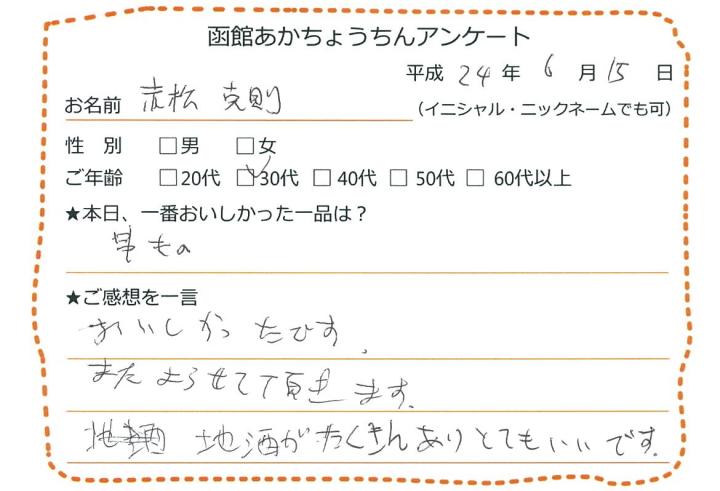 函館あかちょうちんアンケート
平成 24 年 6 月 15 日
お名前 赤松 克則 (イニシャル・ニックネームでも可)
性 別 □男 □女
ご年齢 □20代 ☑30代 □40代 □50代 □60代以上
★本日、一番おいしかった一品は？
串もの
★ご感想を一言
おいしかったです。
またよらせて頂きます。
地酒がたくさんありとてもいいです。